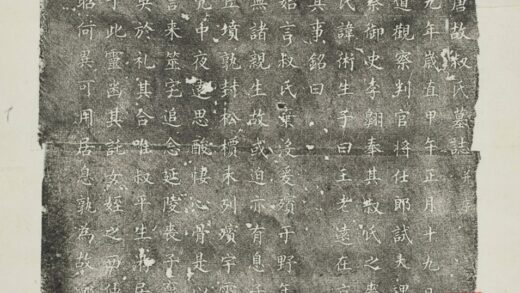 唐故叔氏墓誌并序
九年歲直甲午正月十九日
道觀察判官將仕郎試大理
察御史李翱奉其叔氏之喪
氏諱術生子曰王老遠在京
其事銘曰
始言叔氏棄沒爰殯于野年
無諸親生故或迫亦有息子
立墳龍封松檟未列殯宇
中夜遠思酸悽心骨是以
言來筮宅追念延陵喪子
於礼其合唯叔平生
于此靈函其託女姪之
苟異可用居息孰為故